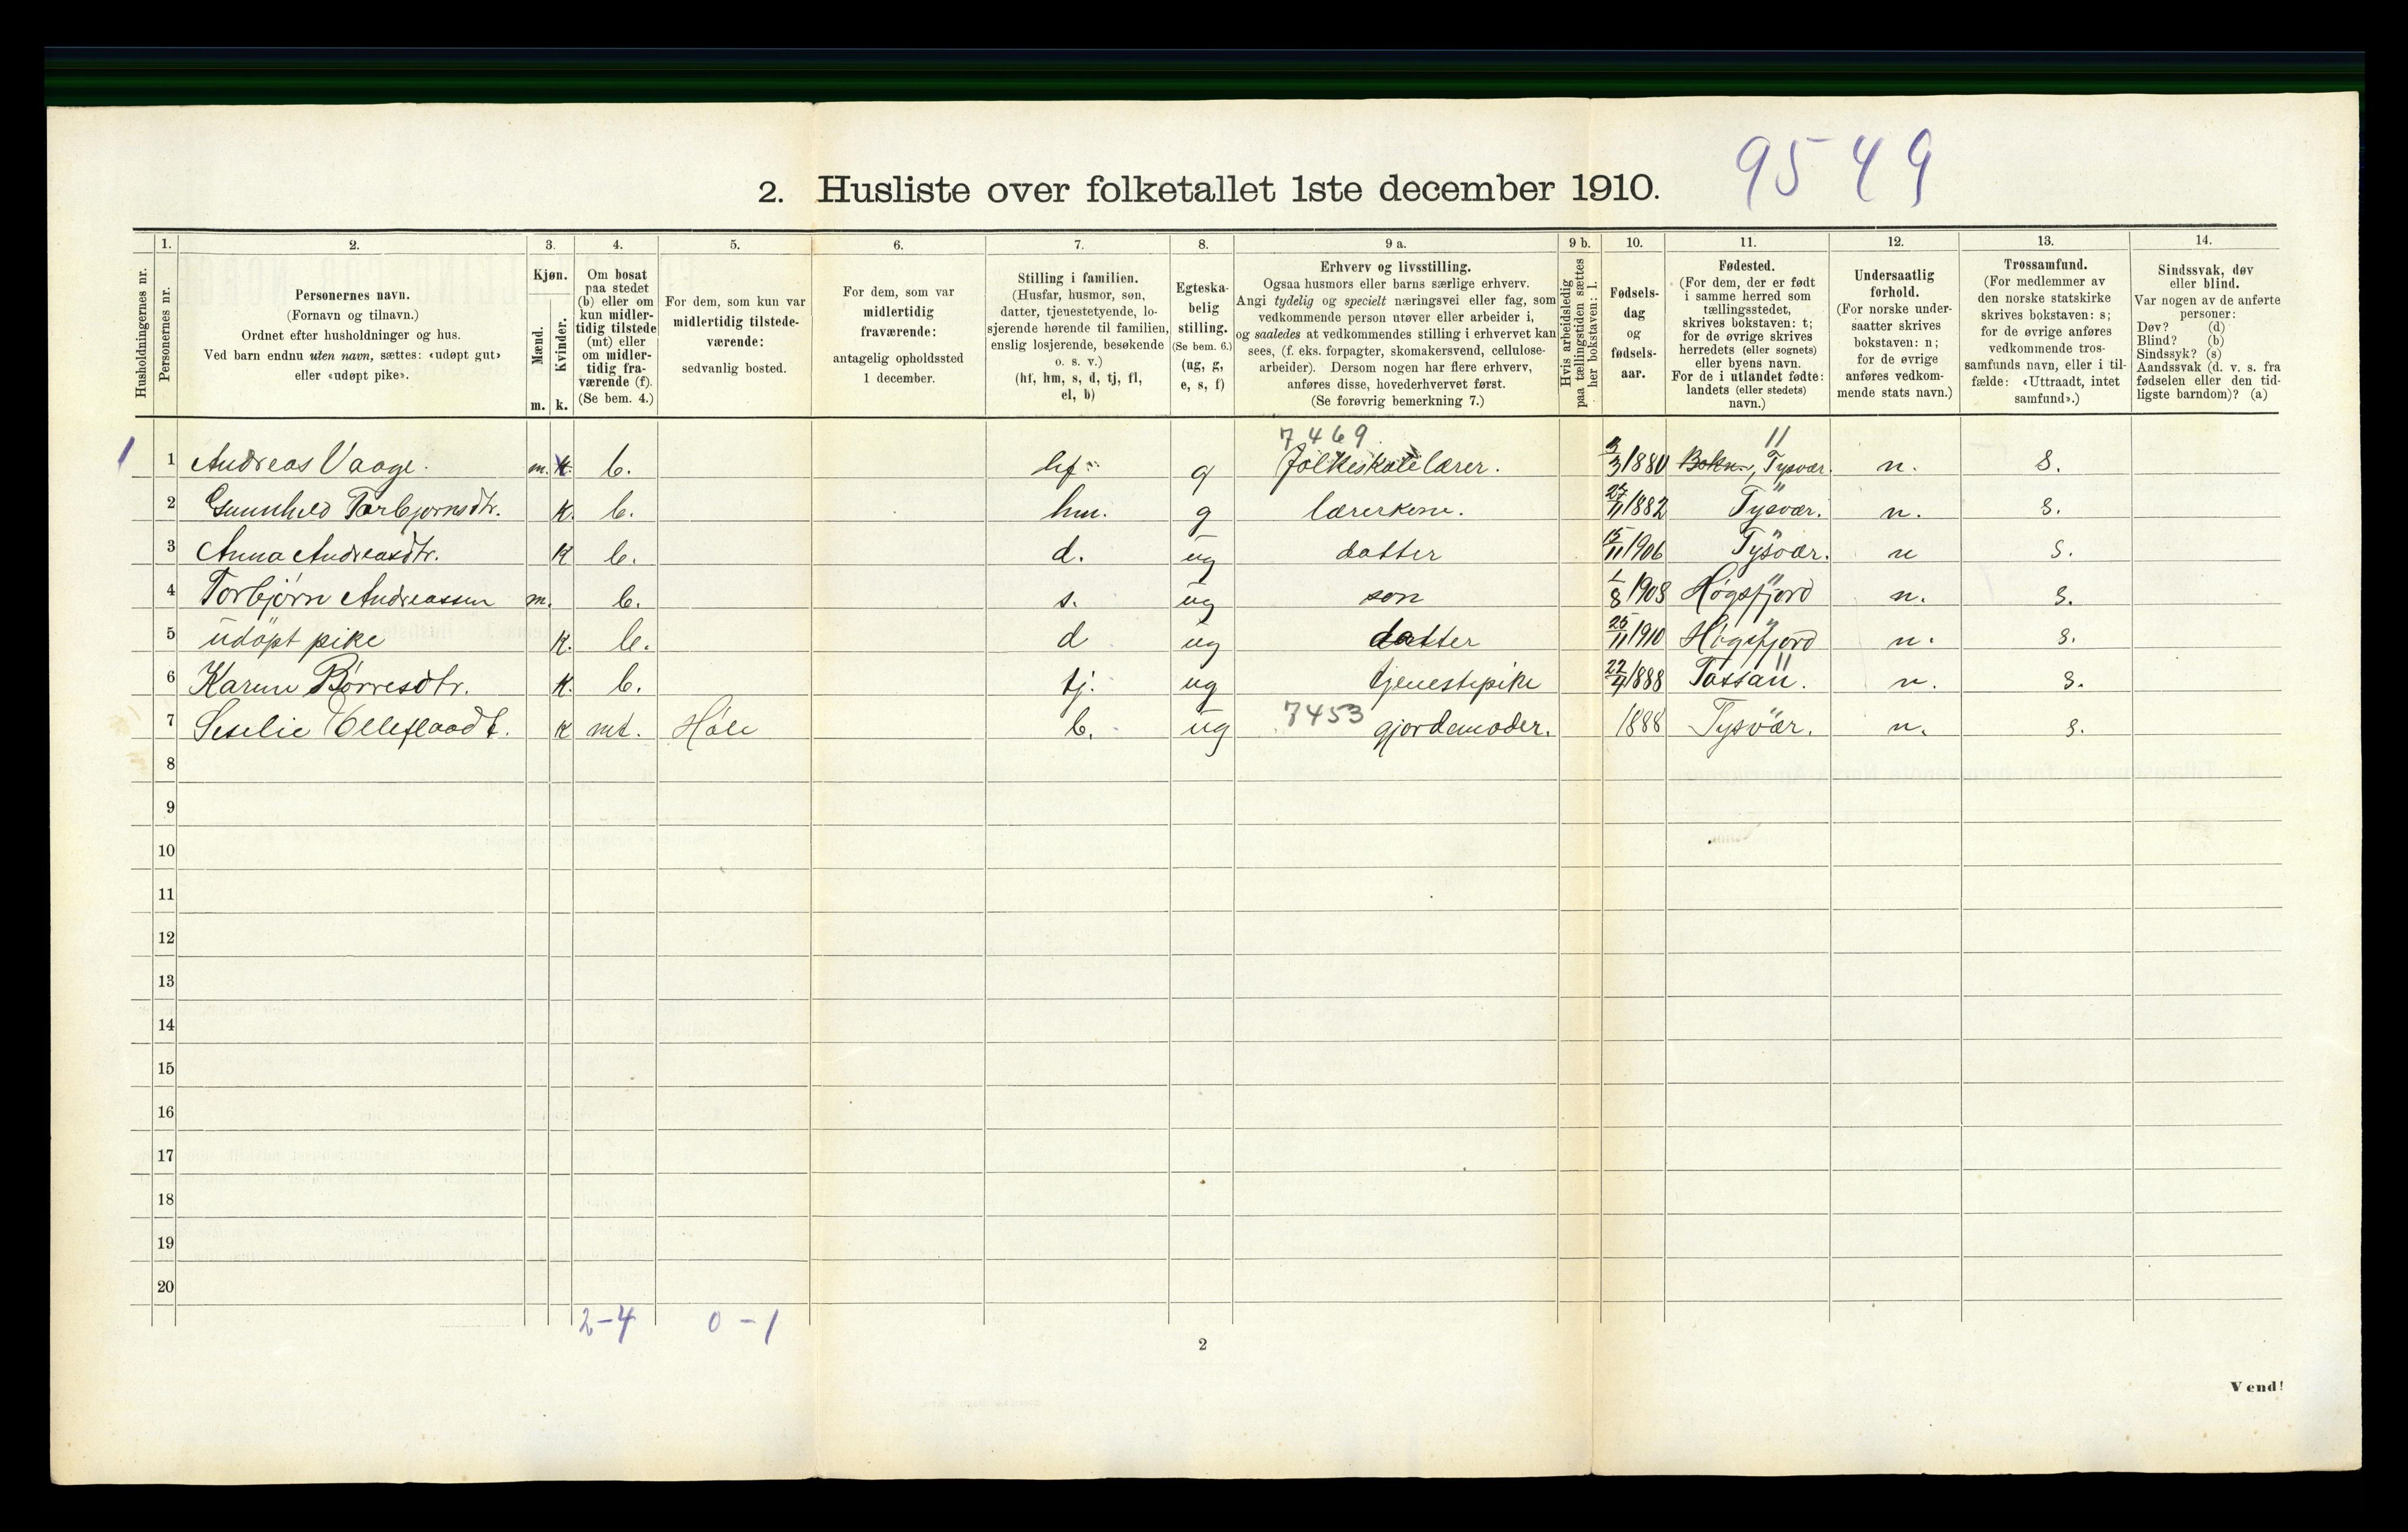 9549
2. Husliste over folketallet 1ste december 1910.
1. 2. 3. 4. 5. 6. 7. 8. 9 a. 9 b. 10. 11. 12. 13. 14.
Husholdningernes nr.
Personernes nr.
Personernes navn.
(Fornavn og tilnavn.)
Ordnet efter husholdninger og hus.
Ved barn endnu uten navn, sættes: «udøpt gut»
eller «udøpt pike».
Kjøn.
Mænd.
Kvinder.
m. k.
Om bosat
paa stedet
(b) eller om
kun midler-
tidig tilstede
(mt) eller
om midler-
tidig fra-
værende (f).
(Se bem. 4.)
For dem, som kun var
midlertidig tilstede-
værende:
sedvanlig bosted.
For dem, som var
midlertidig
fraværende:
antagelig opholdssted
1 december.
Stilling i familien.
(Husfar, husmor, søn,
datter, tjenestetyende, lo-
sjerende hørende til familien,
enslig losjerende, besøkende
o. s. v.)
(hf, hm, s, d, tj, fl,
el, b)
Egteska-
belig
stilling.
(Se bem. 6.)
(ug, g,
e, s, f)
Erhverv og livsstilling.
Ogsaa husmors eller barns særlige erhverv.
Angi tydelig og specielt næringsvei eller fag, som
vedkommende person utøver eller arbeider i,
og saaledes at vedkommendes stilling i erhvervet kan
sees, (f. eks. forpagter, skomakersvend, cellulose-
arbeider). Dersom nogen har flere erhverv,
anføres disse, hovederhvervet først.
(Se forøvrig bemerkning 7.)
Hvis arbeidsledig
paa tællingstiden sættes
her bokstaven: l.
Fødsels-
dag
og
fødsels-
aar.
Fødested.
(For dem, der er født
i samme herred som
tællingsstedet,
skrives bokstaven: t;
for de øvrige skrives
herredets (eller sognets)
eller byens navn.
For de i utlandet fødte:
landets (eller stedets)
navn.)
Undersaatlig
forhold.
(For norske under-
saatter skrives
bokstaven: n;
for de øvrige
anføres vedkom-
mende stats navn.)
Trossamfund.
(For medlemmer av
den norske statskirke
skrives bokstaven: s;
for de øvrige anføres
vedkommende tros-
samfunds navn, eller i til-
fælde: «Uttraadt, intet
samfund».)
Sindssvak, døv
eller blind.
Var nogen av de anførte
personer:
Døv? (d)
Blind? (b)
Sindssyk? (s)
Aandssvak (d. v. s. fra
fødselen eller den tid-
ligste barndom)? (a)
7469 11
1 1 Andreas Vaage. m. k. b. hf. g folkeskolelærer. 3/3 1880 Bokn, Tysvær. n. s.
2 Gunnhild Torbjornsdtr. K. b. hm. g lærerkene. 27/11 1882 Tysvær. n. s.
3 Anna Andreasdtr. K b. d. ug datter 15/11 1906 Tysvær. n s.
4 Torbjörn Andreassen m. b. s. ug son 1/8 1908 Högsfjord n. s.
5 udöpt pike K. b. d ug datter 25/11 1910 Högsfjord n. s.
6 Karen Börresdtr. K. b. tj. ug tjenestepike 22/4 1888 n. s.
7 K mt. Höle b. ug 7453 gjordemoder. 1888 Tysvär. n. s.
8
9
10
11
12
13
14
15
16
17
18
19
20
2-4 0-1
2
Vend!